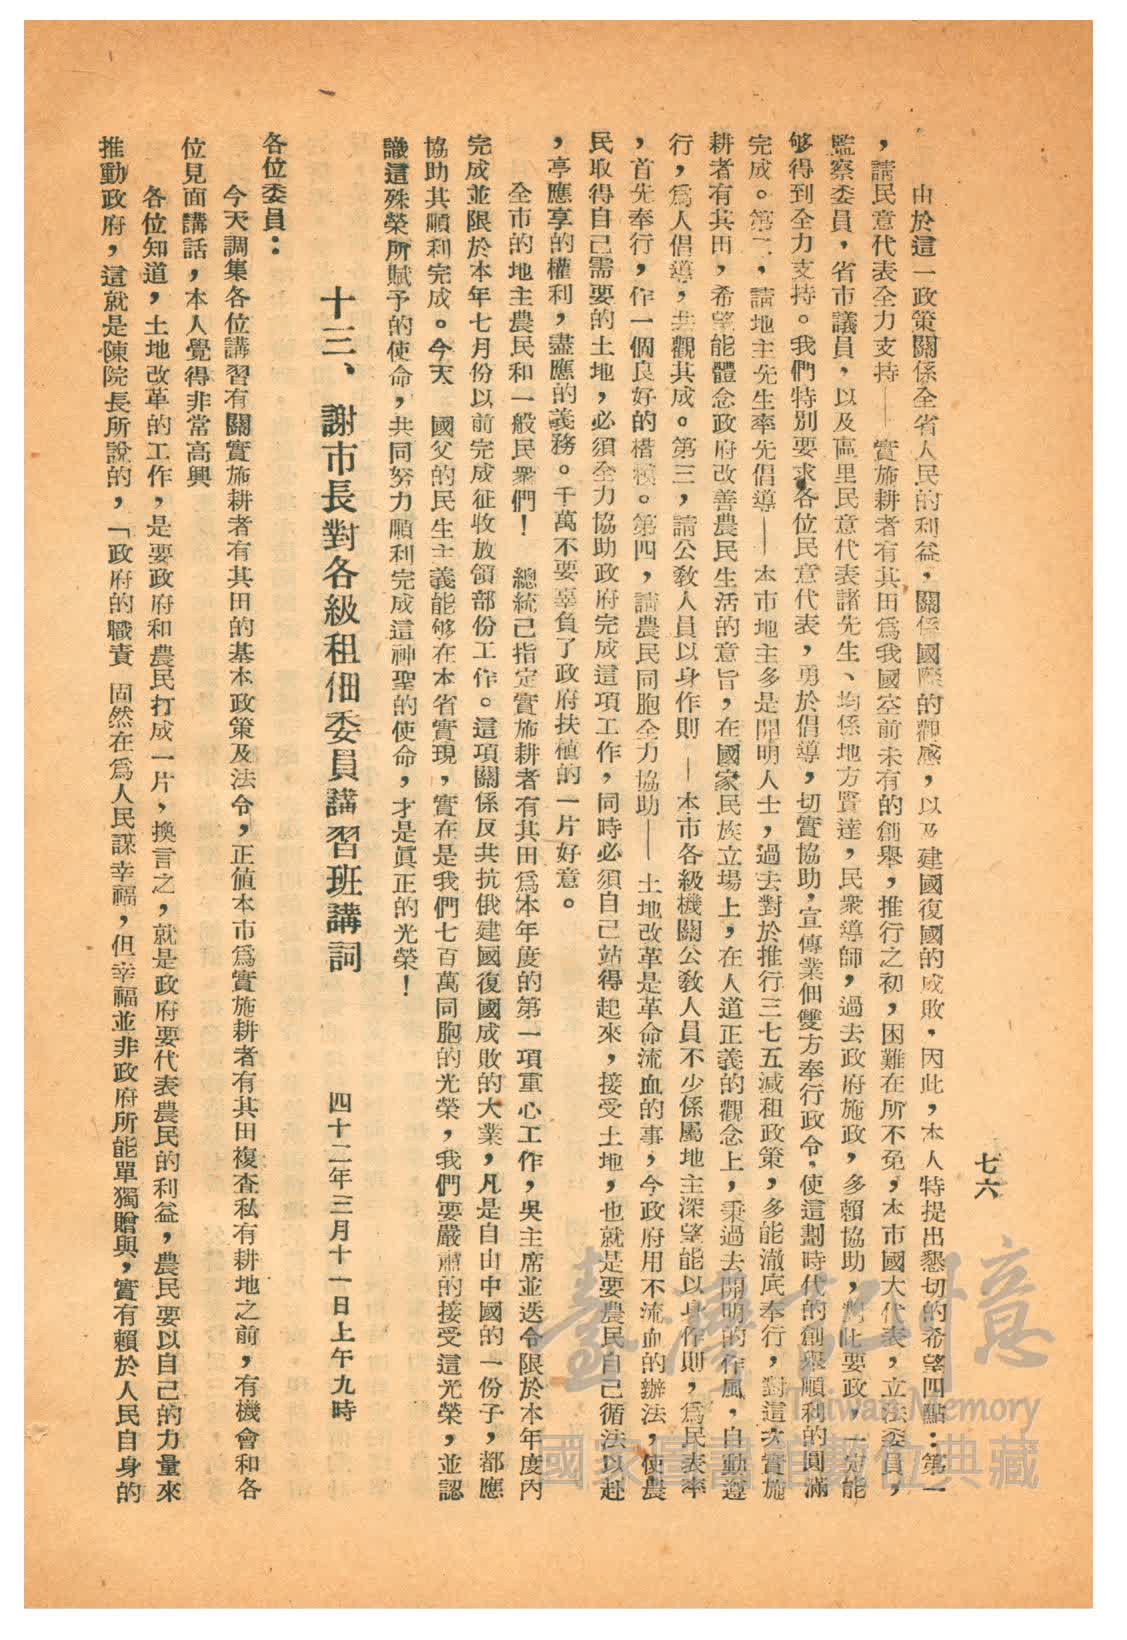 七六
由於這一政策關係全省人民的利益，關係國際的觀感，以及建國復國的成敗，因此，本人特提出懇切的希望四點：第一
，請民意代表全力支持——實施耕者有其田為我國空前未有的創舉，推行之初，困難在所不免，本市國大代表，立法委員，
監察委員，省市議員，以及區里民意代表諸先生、均係地方賢達，民衆導師，過去政府施政，多賴協助，對此要政，一定能
够得到全力支持。我們特別要求各位民意代表，勇於倡導，切實協助，宣傳業佃雙方奉行政令，使這劃時代的創舉順利的圓滿
完成。第二，請地主先生率先倡導——本市地主多是開明人士，過去對於推行三七五减租政策，多能澈底奉行，對這次實施
耕者有其田，希望能體念政府改善農民生活的意旨，在國家民族立場上，在人道正義的觀念上，秉過去開明的作風，自動遵
行，爲人倡導，共觀其成。第三，請公敎人員以身作則——本市各級機關公敎人員不少係屬地主深望能以身作則，爲民表率
，首先奉行，作一個良好的楷模。第四，請農民同胞全力協助——土地改革是革命流血的事，今政府用不流血的辦法，使農
民取得自己需要的土地，必須全力協助政府完成這項工作，同時必須自己站得起來，接受土地，也就是要農民自己循法以赴
，享應享的權利，盡應的義務。千萬不要辜負了政府扶植的一片好意。
全市的地主農民和一般民衆們！　總統已指定實施耕者有其田爲本年度的第一項重心工作，吳主席並迭令限於本年度內
完成並限於本年七月份以前完成征收放領部份工作。這項關係反共抗俄建國復國成敗的大業，凡是自由中國的一份子，都應
協助其順利完成。今天　國父的民生主義能够在本省實現，實在是我們七百萬同胞的光榮，我們要嚴肅的接受這光榮，並認
識這殊榮所賦予的使命，共同努力順利完成這神聖的使命，才是眞正的光榮！
十三、謝市長對各級租佃委員講習班講詞　四十二年三月十一日上午九時
各位委員：
今天調集各位講習有關實施耕者有其田的基本政策及法令，正值本市爲實施耕者有其田複查私有耕地之前，有機會和各
位見面講話，本人覺得非常高興
各位知道，土地改革的工作，是要政府和農民打成一片，換言之，就是政府要代表農民的利益，農民要以自己的力量來
推動政府，這就是陳院長所說的，「政府的職責　固然在爲人民謀幸福，但幸福並非政府所能單獨贈與，實有賴於人民自身的
臺灣記憶
Taiwan Memory
國家圖書館數位典藏